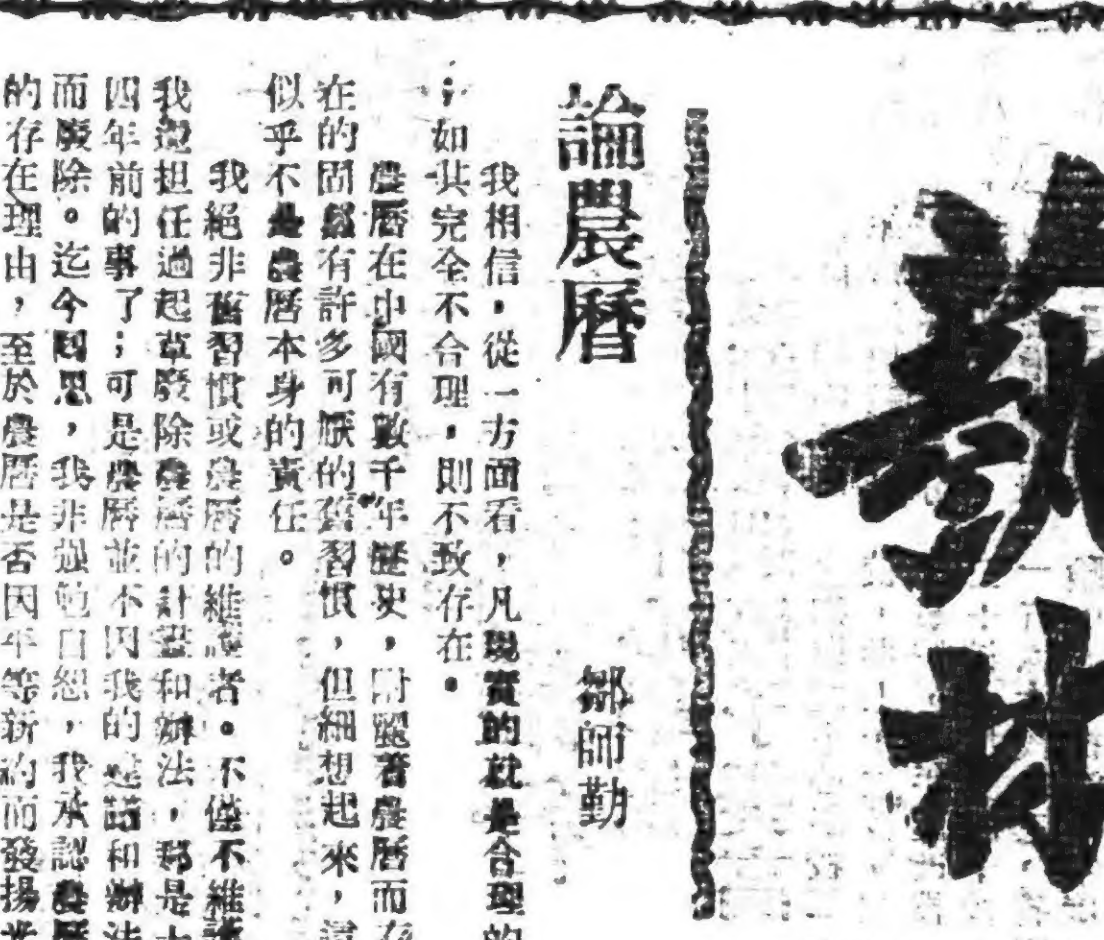 論農曆
鄒師勤
我相信，從一方面看，凡現實的就是合理的
；如其完全不合理，則不致存在。
農曆在中國有數千年歷史，附麗着農曆而存
在的固然有許多可厭的舊習慣，但細想起來，這
似乎不是農曆本身的責任。
我絕非舊習慣或農曆的維護者。不僅不維護
我還担任過起草廢除農曆的計畫和辦法，那是十
四年前的事了；可是農曆並不因我的建議和辦法
而廢除。迄今回思，我非強勉自恕，我承認農曆
的存在理由，至於農曆是否因平等新約而發揚光